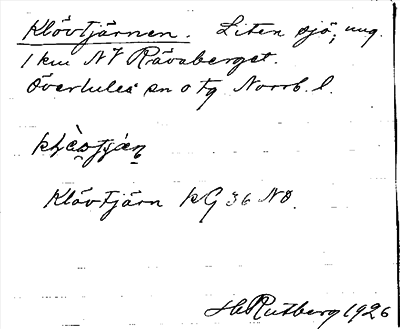 Klövtjärnen. Liten sjö, ung.
1 km NV Rävaberget.
Överlules sn o tg Norrb. l.
Klövtjärn kG 36 NO.
HRutberg 1926